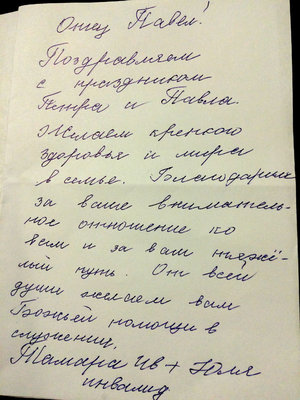 Отец Павел!
Поздравляем
с праздником
Петра и Павла.
Желаем крепкого
здоровья и мира
в семье. Благодарим
за ваше вниматель-
ное отношение ко
всем и за ваш тяжё-
лый путь. От всей
души желаем вам
Божьей помощи в
служении.
Тамара Ив + Юля
инвалид